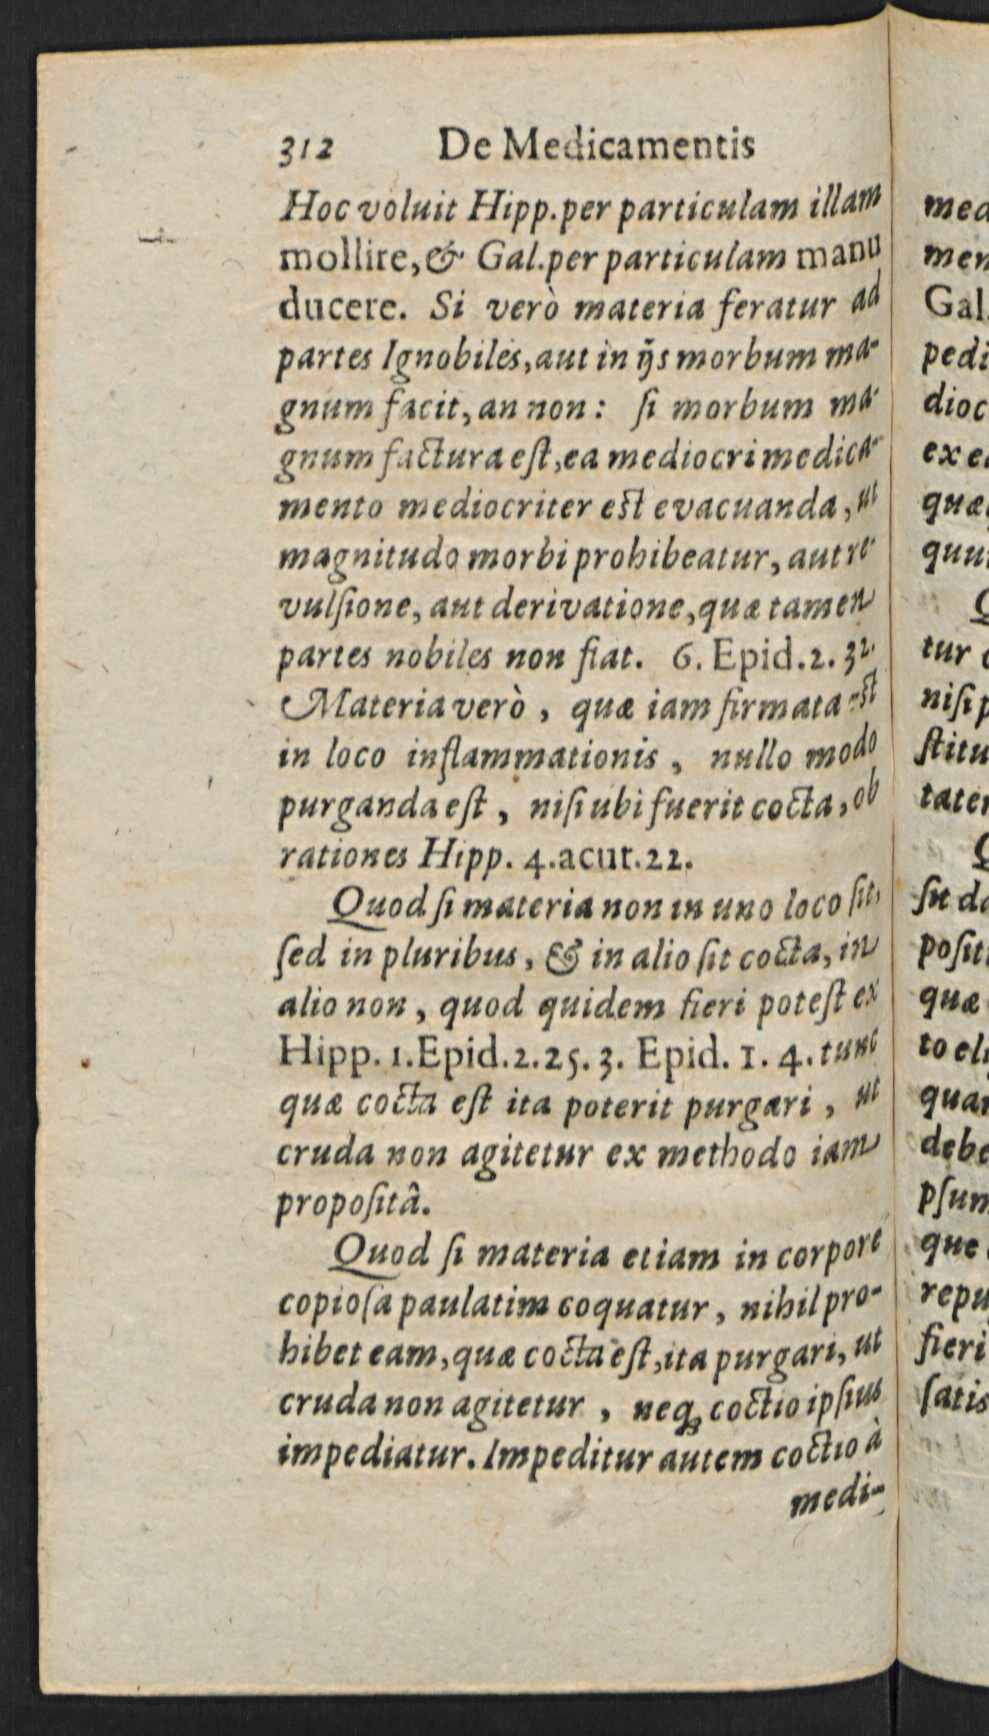 312 De Medicamentis
Hoc voluit Hipp. per particulam illam
mollire, & Gal. per particulam manu
ducere. Si verò materia feratur ad
partes Ignobiles, aut in ijs morbum ma-
gnum facit, an non: ſi morbum ma-
gnum factura eſt, ea mediocri medica-
mento mediocriter eſt evacuanda, ut
magnitudo morbi prohibeatur, aut re-
vulſione, aut derivatione, quæ tamen
partes nobiles non fiat. 6. Epid. 2. 32.
Materia verò, quæ iam firmata -st
in loco inflammationis, nullo modo
purganda eſt, niſi ubi fuerit cocta, ob
rationes Hipp. 4. acut. 22.
Quod ſi materia non in uno loco ſit,
ſed in pluribus, & in alio ſit cocta, in
alio non, quod quidem fieri poteſt ex
Hipp. 1. Epid. 2. 25. 3. Epid. 1. 4. tunc
quæ cocta eſt ita poterit purgari, ut
cruda non agitetur ex methodo iam
propoſitâ.
Quod ſi materia etiam in corpore
copioſa paulatim coquatur, nihil pro-
hibet eam, quæ cocta eſt, ita purgari, ut
cruda non agitetur, neq; coctio ipſius
impediatur. Impeditur autem coctio à
medi-